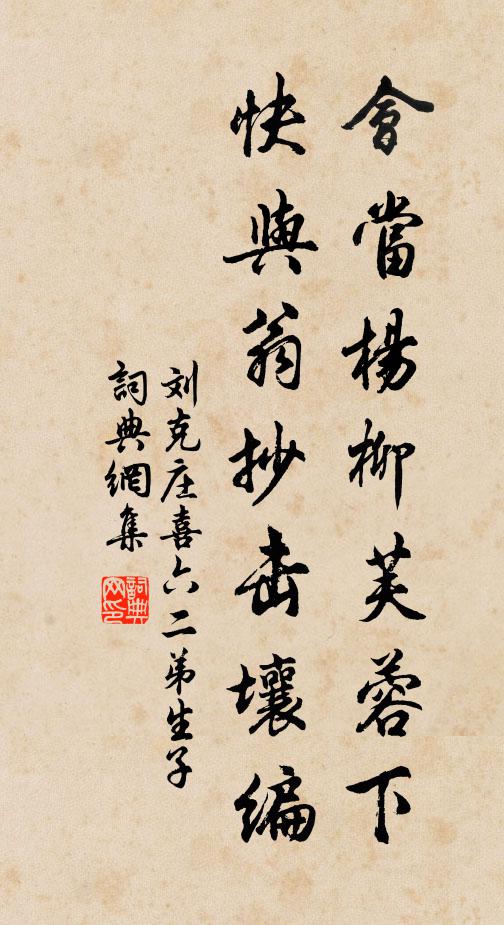 會當楊柳芙蓉下
快與翁抄击壤编
刘克庄喜六二弟生子
詞典網集
詞典
网印